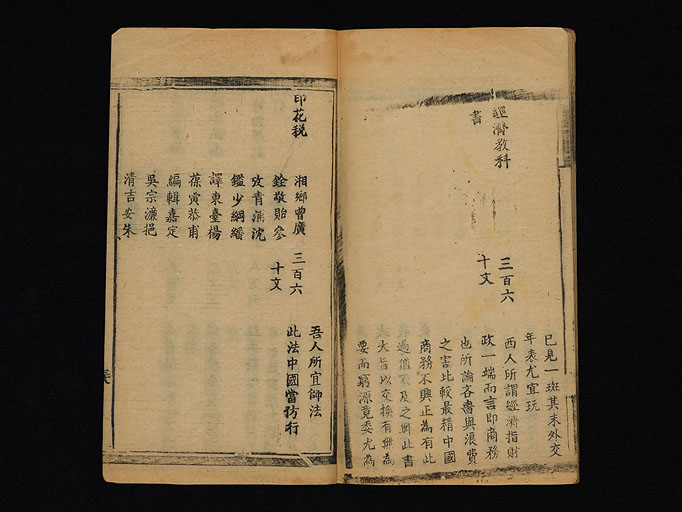 已見一斑其末外交
年表尤宜玩
經濟教科
書
三百六
十文
西人所謂經濟指財
政一端而言即商務
也所論各嗇與浪費
之害比較最精中國
商務不興正為有此
過僧家及之輒此書
大旨以交換有無為
要而窮源竟委尤為
印花税
湘鄉曾廣
銓敬貽參
攷青蒲沈
鑑少綱繙
譯東臺楊
葆寅恭甫
編輯嘉定
吳宗濂挹
清吉安朱
三百六
十文
吾人所宜師法
此法中國當仿行